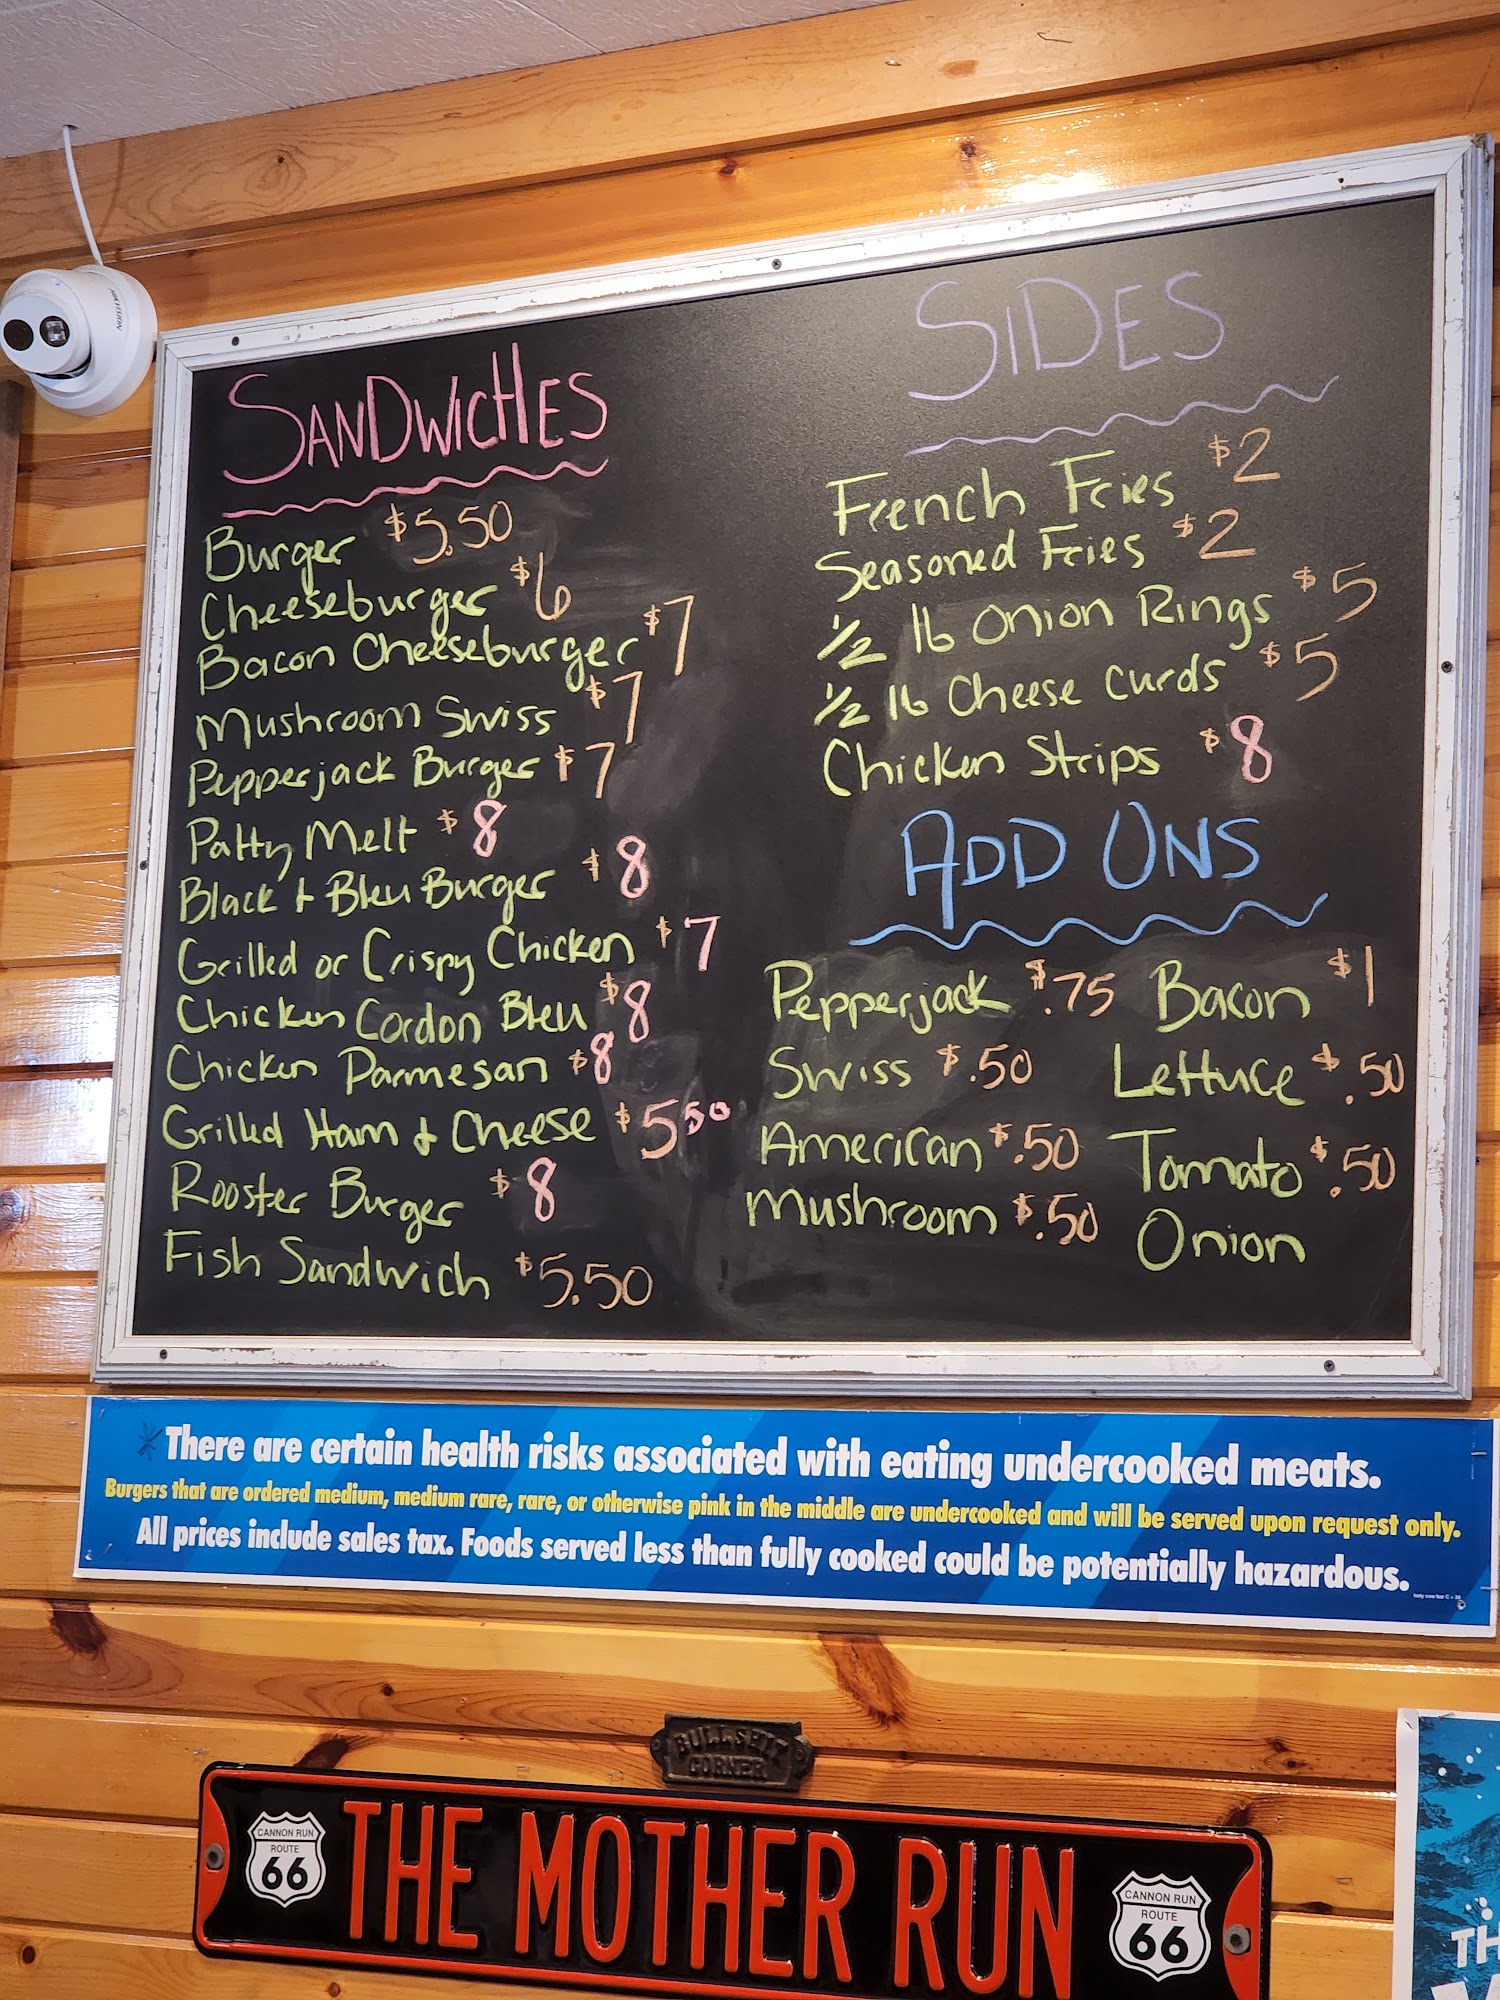 SANDWICHES
Burger $5.50
Cheeseburger $6
Bacon Cheeseburger $7
Mushroom Swiss $7
Pepperjack Burger $7
Patty Melt $8
Black & Bleu Burger $8
Grilled or Crispy Chicken $7
Chicken Cordon Bleu $8
Chicken Parmesan $8
Grilled Ham & Cheese $5 50
Rooster Burger $8
Fish Sandwich $5.50
SIDES
French Fries $2
Seasoned Fries $2
1/2 lb Onion Rings $5
1/2 lb Cheese Curds $5
Chicken Strips $8
ADD ONS
Pepperjack $.75 Bacon $1
Swiss $.50 Lettuce $.50
American $.50 Tomato $.50
Mushroom $.50 Onion
There are certain health risks associated with eating undercooked meats.
Burgers that are ordered medium, medium rare, rare, or otherwise pink in the middle are undercooked and will be served upon request only.
All prices include sales tax. Foods served less than fully cooked could be potentially hazardous.
BULLSHIT
CORNER
CANNON RUN
ROUTE
66
THE MOTHER RUN
CANNON RUN
ROUTE
66
HIKVISION